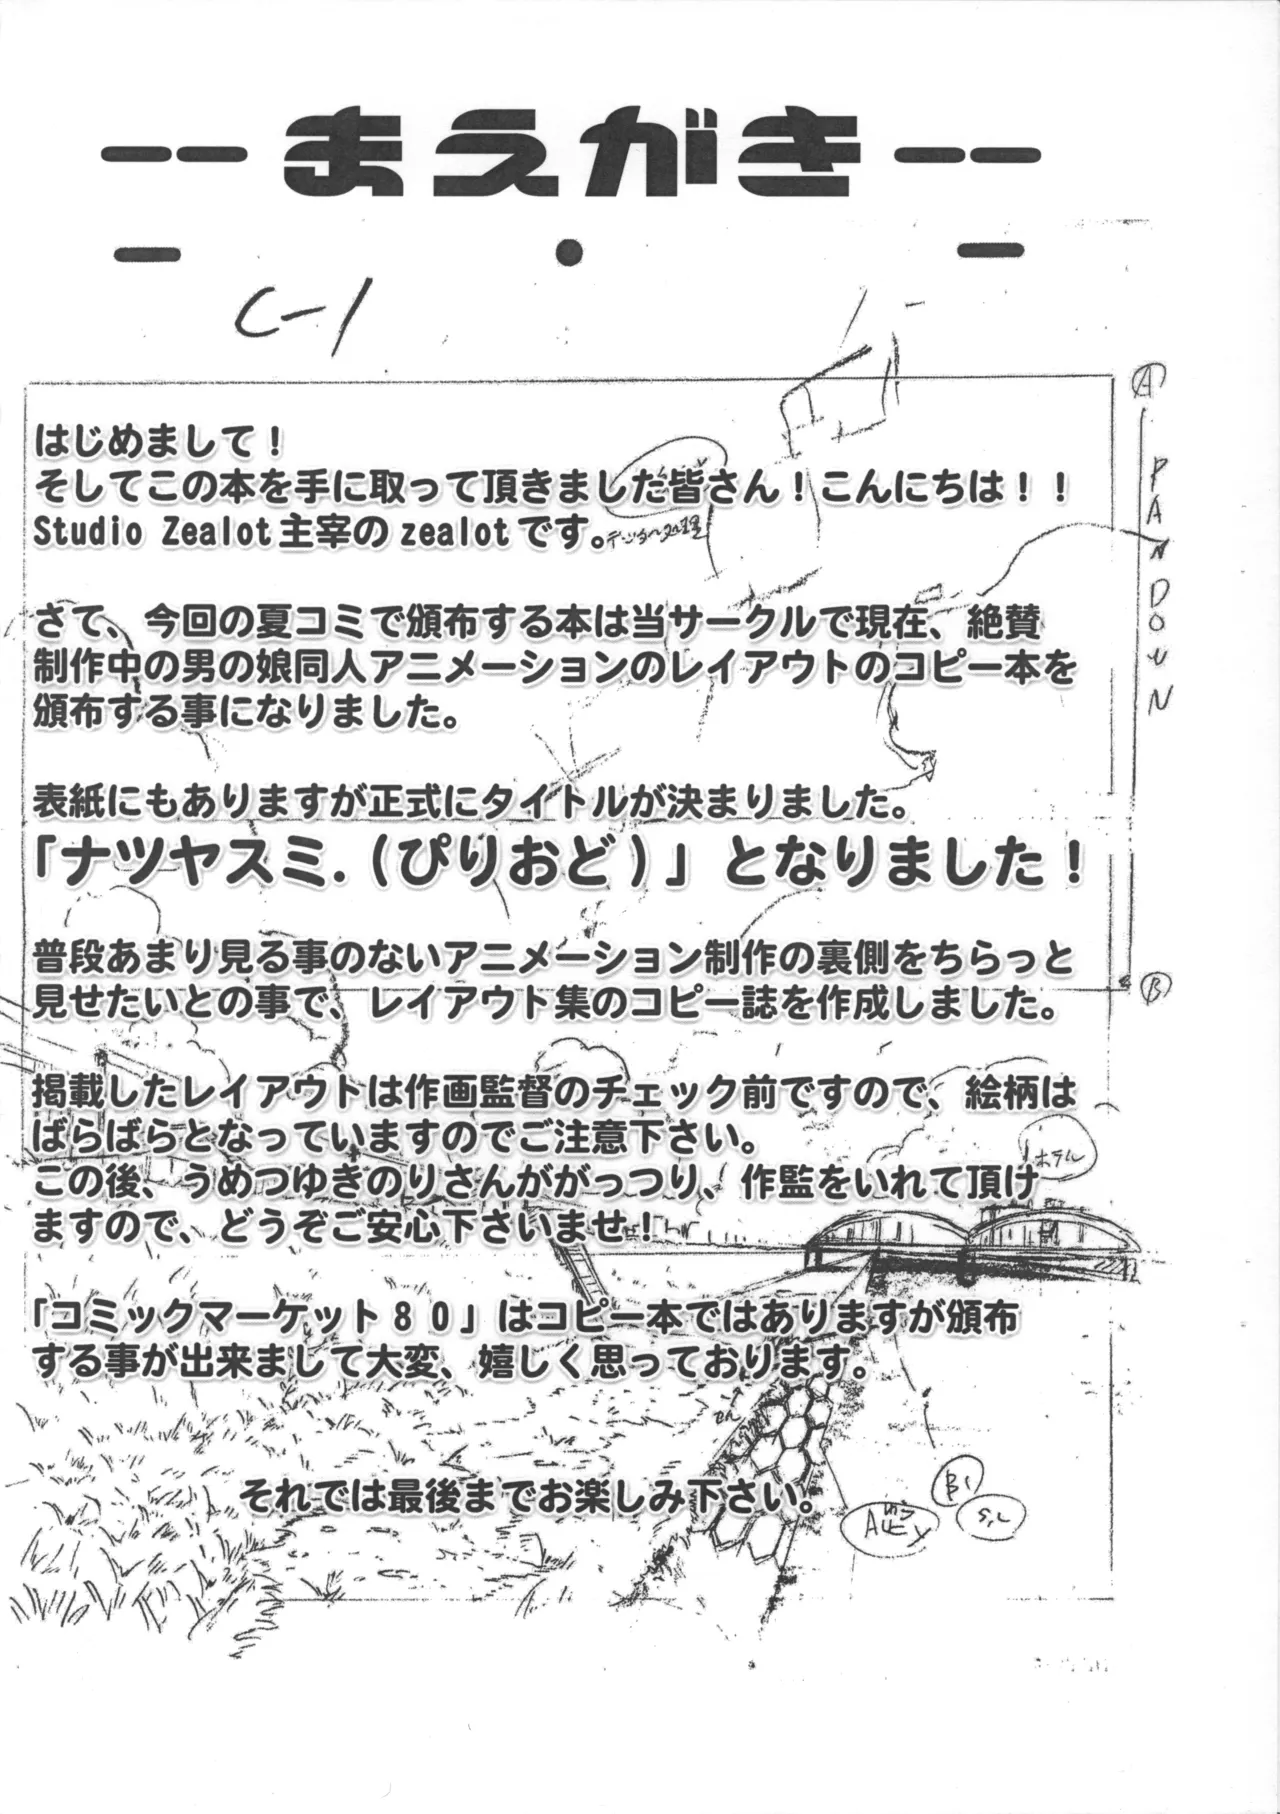 --まえがき--
C-1
A
はじめまして！
そしてこの本を手に取って頂きました皆さん！こんにちは！！
Studio Zealot主宰のzealotです。
PANDOWN
さて、今回の夏コミで頒布する本は当サークルで現在、絶賛
制作中の男の娘同人アニメーションのレイアウトのコピー本を
頒布する事になりました。
表紙にもありますが正式にタイトルが決まりました。
「ナツヤスミ.(ぴりおど)」となりました！
普段あまり見る事のないアニメーション制作の裏側をちらっと
見せたいとの事で、レイアウト集のコピー誌を作成しました。
B
掲載したレイアウトは作画監督のチェック前ですので、絵柄は
ばらばらとなっていますのでご注意下さい。
ホテル
この後、うめつゆきのりさんががっつり、作監をいれて頂け
ますので、どうぞご安心下さいませ！
「コミックマーケット８０」はコピー本ではありますが頒布
する事が出来まして大変、嬉しく思っております。
それでは最後までお楽しみ下さい。